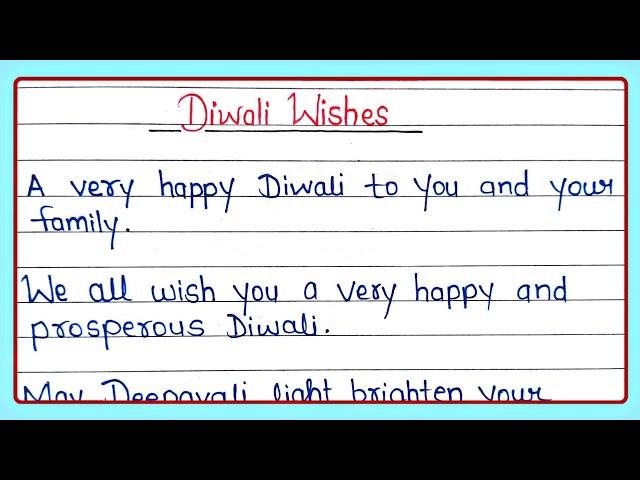 Diwali Wishes
A very happy Diwali to you and your
family.
We all wish you a very happy and
prosperous Diwali.
May Deepavali light brighten your